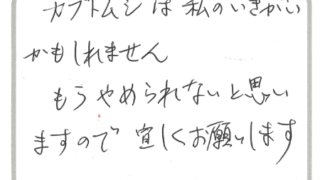 カブトムシは私のいきがい
かもしれません
もうやめられないと思い
ますので宜しくお願いします